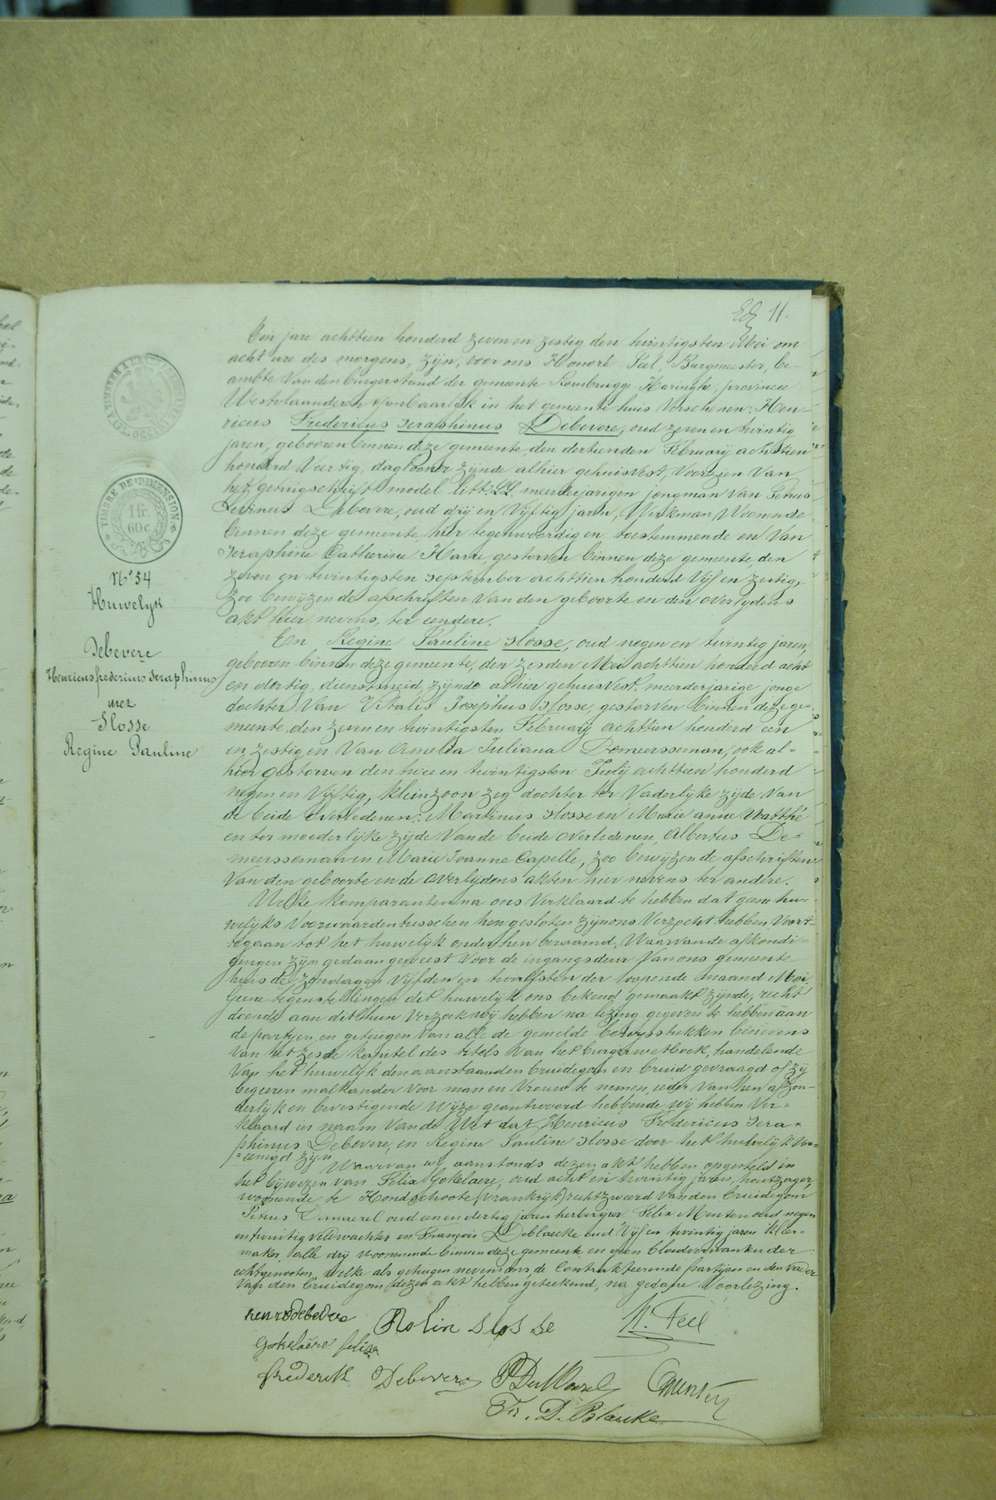 11.
TIMBRE DE DIMENSION
1 fr.
60 c.
N° 54
Huwelyk
Debevere
Henricus fredericus Seraphinus
met
Slosse
Regine Pauline
Een jare achttien honderd zeven en zestig den twintigsten Mei om
acht ure des morgens, zijn, voor ons Honoré Feel, Burgmeester, be-
ambte van den burgerstand der gemeente Rousbrugge Haringhe, provincie
Westvlaanderen openbaarlyk in het gemeente huis verschenen: Hen-
ricus Fredericus Seraphinus Debevere, oud zeven en twintig
jaren, geboren binnen deze gemeente den dertienden February achttien
honderd veertig, daglooner zijnde alhier gehuisvest, voorzien van
het getuigschrift model litt. meerderjarigen jongman van Petrus
Debevere, oud drij en vijftig jaren, Werkman, Woonende
binnen deze gemeente hier tegenwoordig en toestemmende en van
Seraphine Catherine gestorven binnen deze gemeente den
zeven en twintigsten september achttien honderd vijf en zestig,
zoo bewijzen de afschriften van den geboorte en den overlydens
akt hier nevens, ter eendere.
En Regine Pauline Slosse, oud negen en twintig jaren,
geboren binnen deze gemeente, den zesden Mei achttien honderd acht
en dertig, dienstmeid, zijnde alhier gehuisvest, meerderjarige jonge
dochter van Vitalis Josephus Slosse, gestorven binnen deze ge-
meente den zeven en twintigsten February achttien honderd een
en zestig en van Amelia Juliana Demeersseman, ook al-
hier gestorven den twee en twintigsten July achttien honderd
negen en vijftig, kleinzoon zeg dochter ter vaderlyke zijde van
de beide overledenen: Martinus Slosse en Marie anne
en ter moederlijke zijde van de beide overledenen, Albertus De-
meersseman en Marie Joanne Capelle, zoo bewijzen de afschriften
van den geboorte en de overlydens akten hier nevens ter andere.
Welke komparanten na ons verklaard te hebben dat geene hu-
welijks voorwaarden tusschen hen gesloten zijn ons verzocht hebben voort
te gaan tot het huwelijk onder hen beraamd, Waarvan de afkondi-
gingen zijn gedaan geweest voor de ingangsdeur van ons gemeente
huis de zondagen vijfden en twaalfsten der loopende maand Mei.
Geene tegenstellingen dit huwelijk ons bekend gemaakt zijnde, recht
doende aan dit hun verzoek wij hebben na lezing gegeven te hebben aan
de partijen en getuigen van alle de gemelde bewysstukken benevens
van het zesde kapitel des titels van het burger wetboek, handelende
van het huwelijk den aanstaanden bruidegom en bruid gevraagd of zij
begeeren malkander voor man en vrouw te nemen, ieder van hen afzon-
derlijk en bevestigende wijze geantwoord hebbende wij hebben ver-
klaard in naam van de Wet dat Henricus Fredericus Sera-
phinus Debevere, en Regine Pauline Slosse door het huwelijk ver-
eenigd zijn
Waarvan wij aanstonds dezen akt hebben opgesteld in
het bijwezen van Felix Gokelaere, oud acht en twintig jaren, houtzager,
woonende te Hondschoote (Frankryk) rechtzweerd van den bruidegom
Petrus oud een en dertig jaren herbergier Felix oud negen
en twintig veldwachter en François Deblaucke oud vijf en twintig jaren kleer-
maker alle drij woonende binnen deze gemeente en geen bloedverwanten der
echtgenooten, welke als getuigen nevens ons de Contrakteerende partijen en den vader
van den bruidegom dezen akt hebben geteekend, na gedane voorlezing.
henri debevere
Rosin Slosse
H. Feel
Gokelaère félix
frederik Debevere
Fr. D. Blaucke